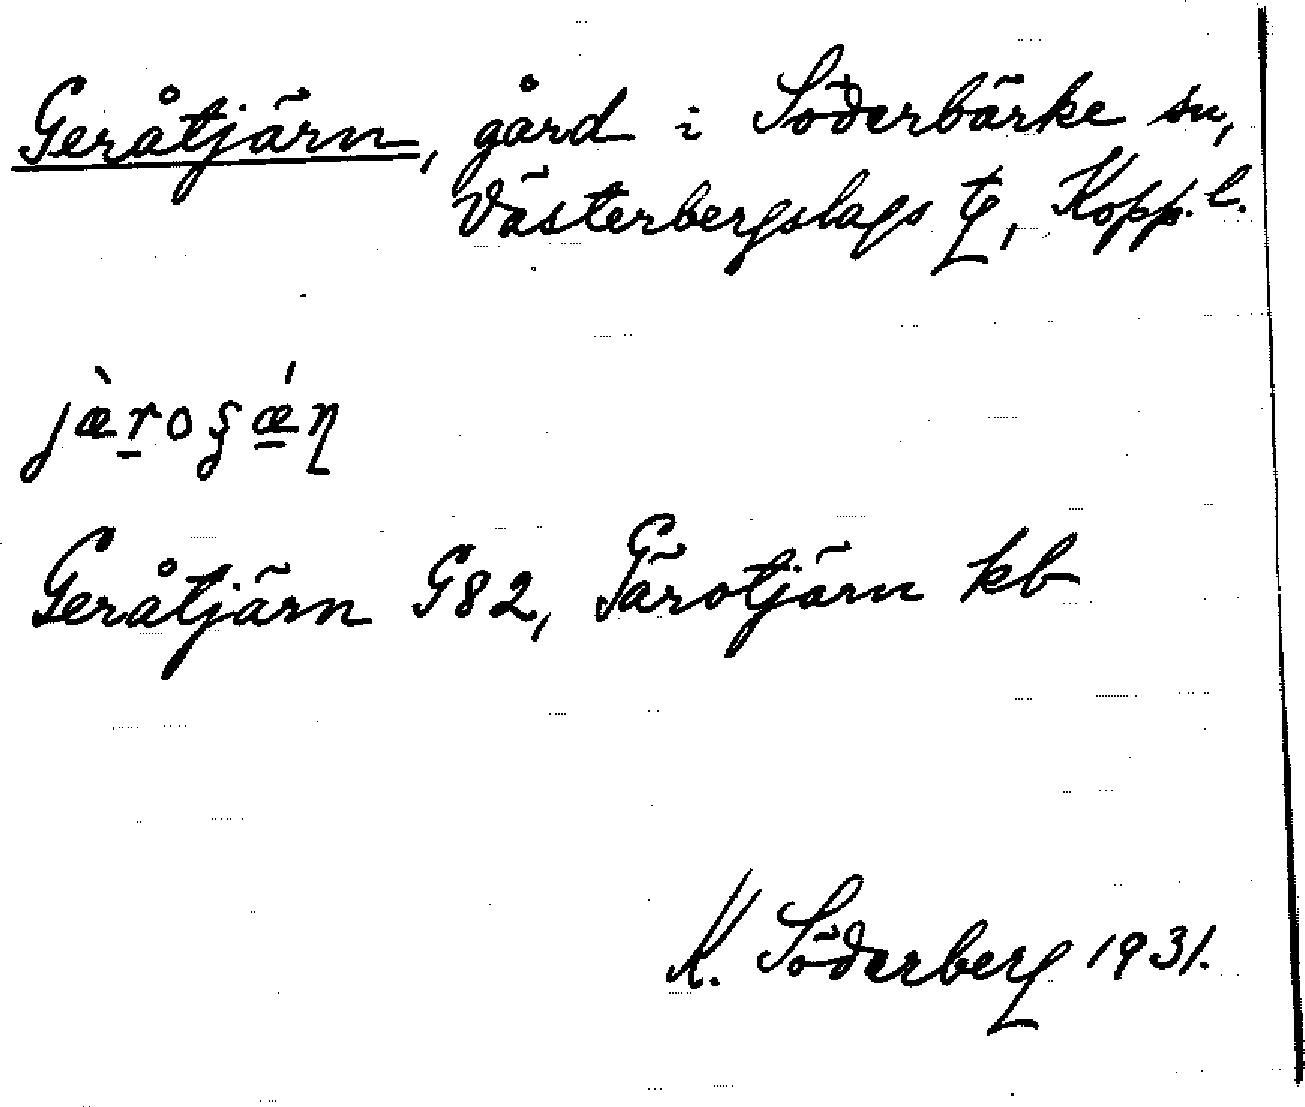 Geråtjärn, gård i Söderbärke sn,
Västerbergslags tg, Kopp. l.
jæ̀roʂǽɳ
Geråtjärn G82, Gärotjärn kb
K. Söderberg 1931.